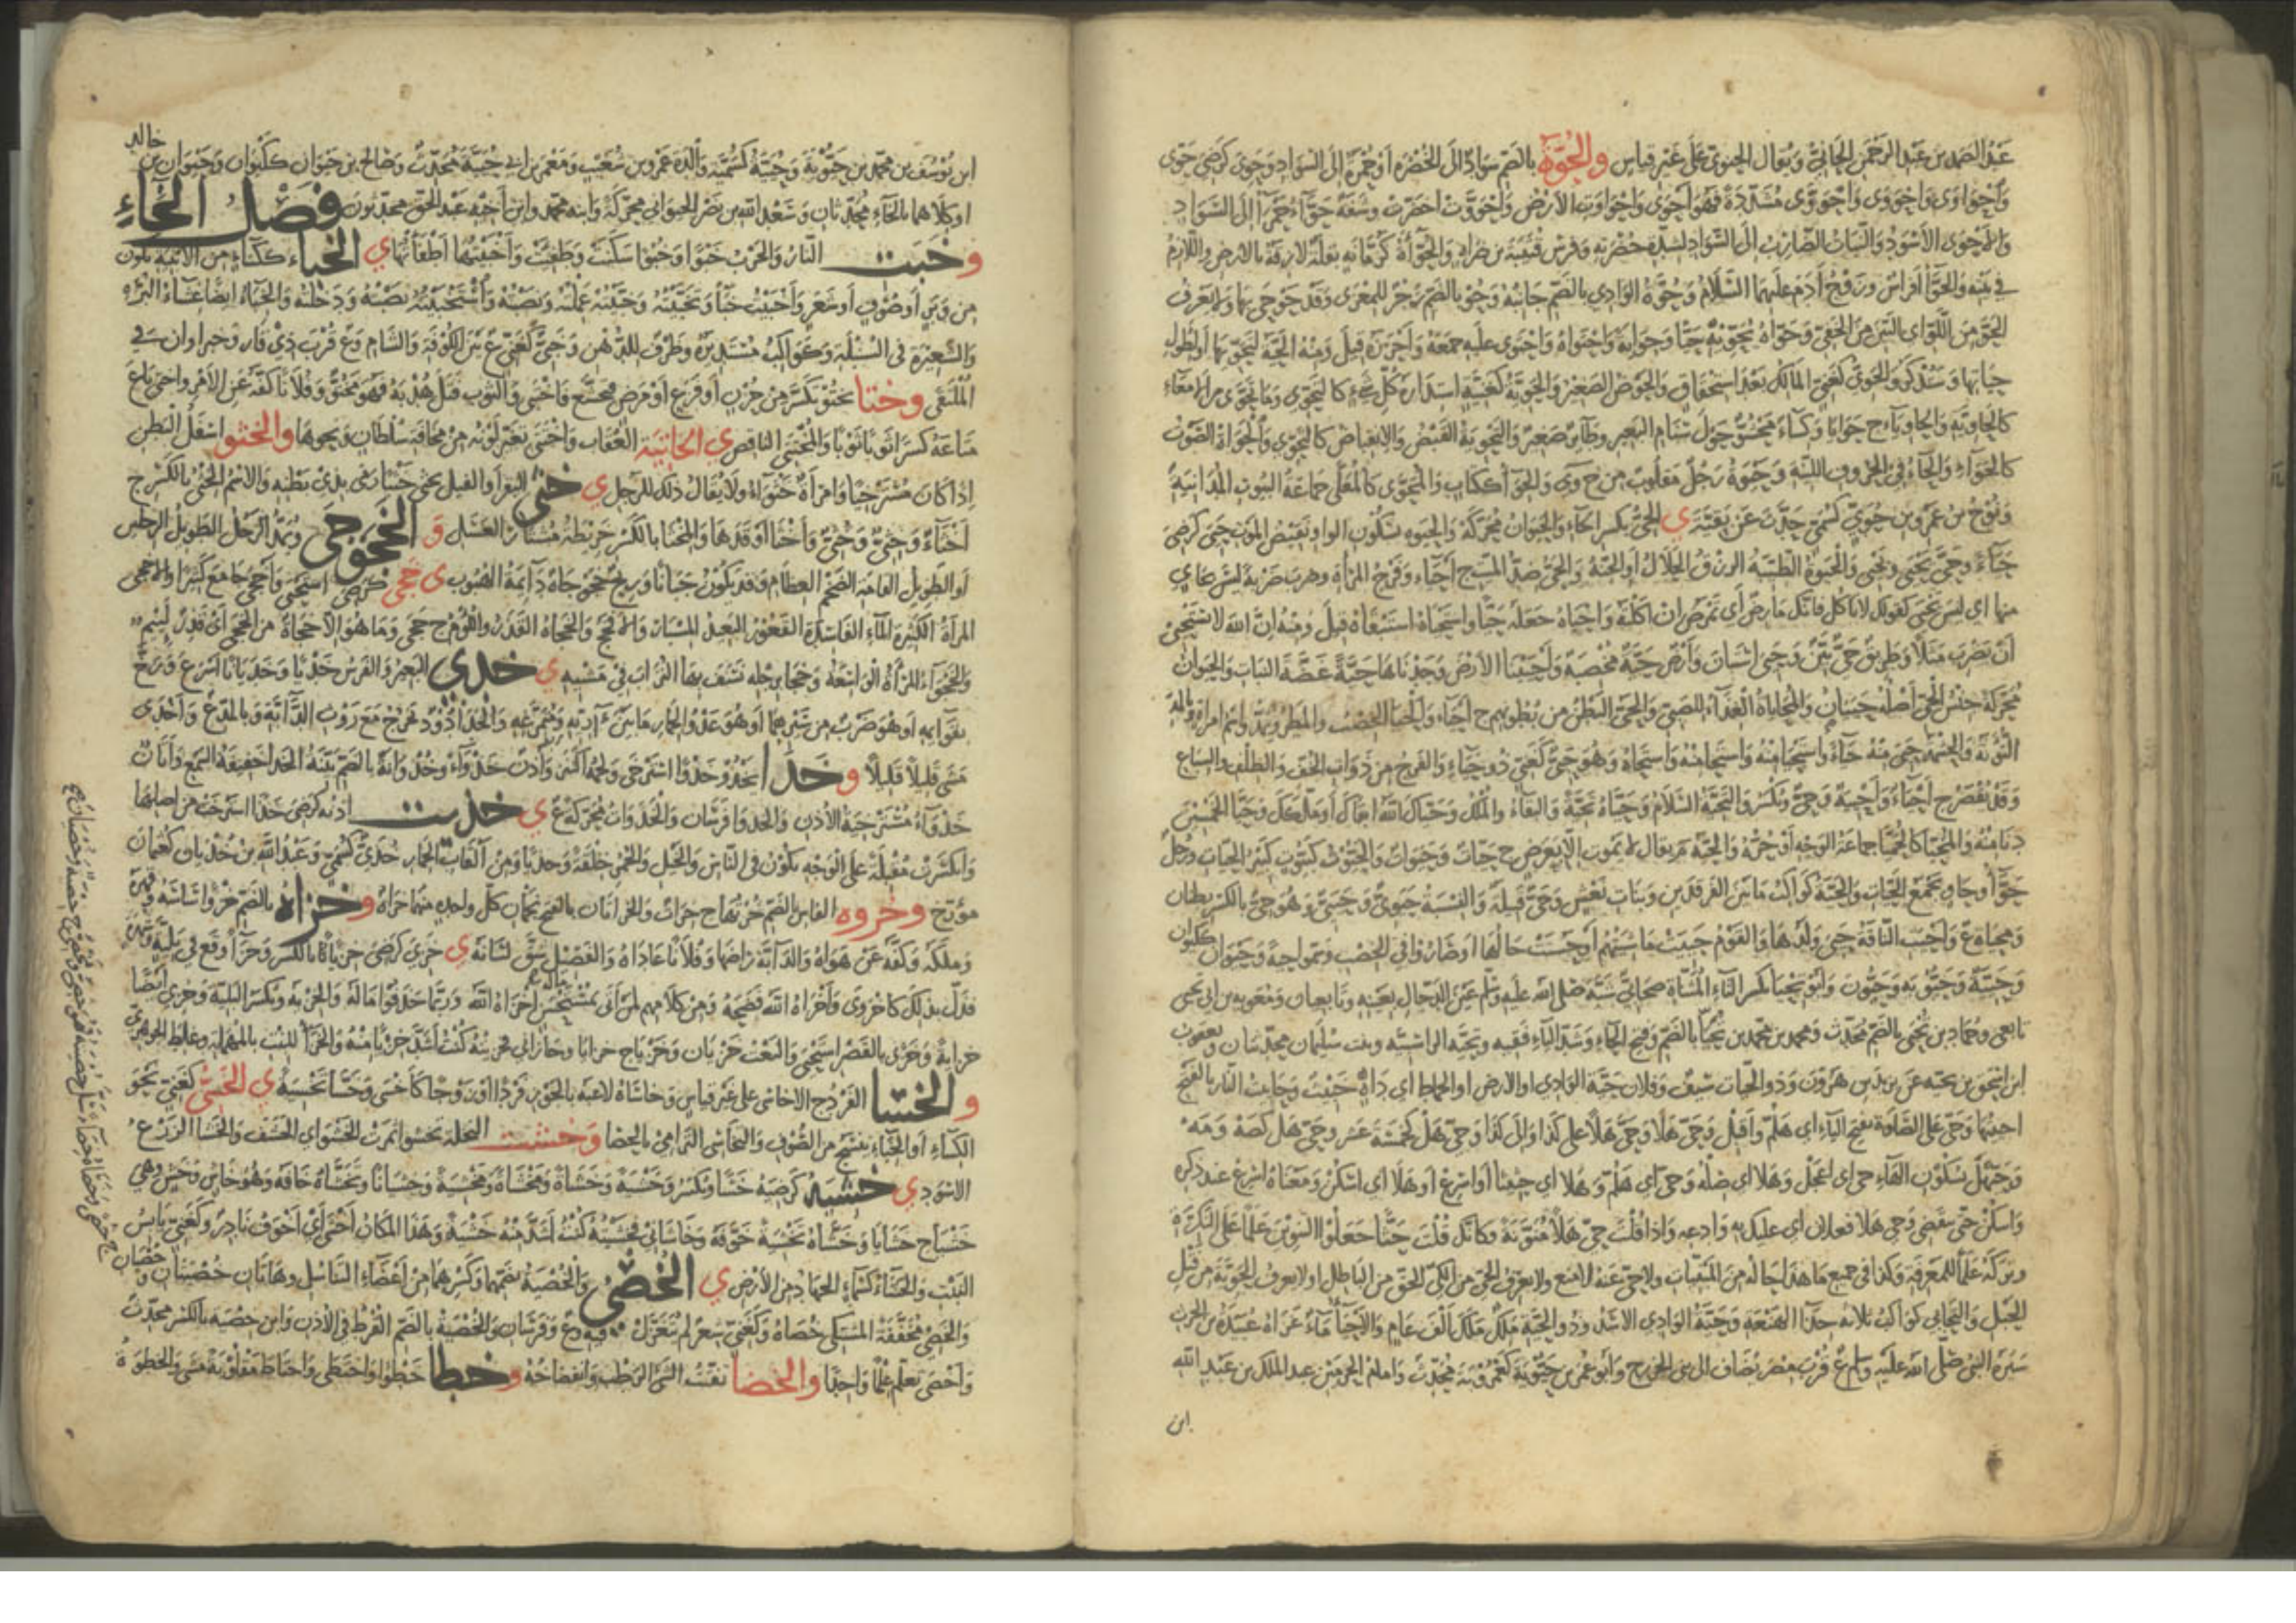 عبد الصمد بن عبد الرحمن الحانيّ ويقال الحينوي على غير قياس والحُوَّة بالضم سواد الى الخضرة او حمرة الى السواد وحوى كرضى حوى
واحواوى واحووى واحووّى مشددة فهو احوى واحواوت الارض واحووّت اخضرت وشفة حوّاء حمرآ الى السواد
والاحوى الاسود والنبات الضارب الى السواد لشدة خضرته وفرس قتيبة بن ضرار والحوّاءة كرمّانة بقلة لازقة بالارض واللازم
في بيته والحوّاء افراس وزوج آدم عليهما السلام وحوّة الوادي بالضم جانبه وحو بالضم زجر للمعزى وقد حوحى بها ولا يعرف
الحوّ من اللوّ اي البيّن من الخفيّ وحواه يحويه حيّا وحواية واحتواه واحتوى عليه جمعه واحرزه قيل ومنه الحية لتحويها او لطول
حياتها وستذكر والحويّ كغني المالك بعد استحقاق والحوض الصغير والحوية كغنية استدارة كل شيء كالتحوي وما تحوى من الامعاء
كالحاوية والحاوياء ج حوايا وكساء محشو حول سنام البعير وطائر صغير والتحوية القبض والانقباض كالتحوي والحواة الصوت
كالحواء والحاء في الحروف اللينة وحيوة رجل مقلوب من ح وى والحواء ككتاب والمحوى كالمعلى جماعة البيوت المتدانية
ونوح بن عمرو بن حويّ كسمي حدث عن بقية ي الحيّ بكسر الحاء والحيوان محركة والحيوه بسكون الواو نقيض الموت حيي كرضي
حياء وحيّ يحيى ويحي والحيوة الطيبة الرزق الحلال او الجنة والحيّ ضد الميت ج احياء وفرج المراة وضرب ضربة ليس بحاي
منها اي ليس يحيى كقولك لا تاكل فانك مارض اى تمرض ان اكلته واحياه جعله حيّا واستحياه استبقاه قيل ومنه ان الله لا يستحيى
ان يضرب مثلا وطريق حيّ بيّن وحيي استبان وارض حية مخصبة واحيينا الارض وجدناها حية غضة النبات والحيوان
محركة جنس الحيّ اصله حييان والمحاياة الغذاء للصبي والحي البطن من بطونهم ج احياء والحيا الخصب والمطر ويمدّ واسم امراة وبالمد
التوبة والحشمة حيي منه حياء واستحيا منه واستحى منه واستحياه وهو حيي كغني ذو حياء والفرج من ذوات الخف والظلف والسباع
وقد يقصر ج احياء واحيية وحيّ ويكسر والتحية السلام وحياه تحية والبقاء والملك وحياك الله ابقاك او ملكك وحيا الخمسين
دنا منها والمحيا كالحميا جماعة الوجه او حره والحية م يقال لا تموت الا بعرض ج حيات وحيوات والحيوت كتنور ذكر الحيات ورجل
حوّاء وحاو يجمع الحيات والحية كواكب ما بين الفرقدين وبنات نعش وحيّ قبيلة والنسبة حيوي وحييي وهو حي بالكسر بطنان
ومحياة ع واحيت الناقة حيي ولدها والقوم حييت ماشيتهم او حسنت حالها او صاروا في الخصب وسموا حية وحيوان ككيوان
وحيية وحيويه وحيّون وابو تحيا بكسر التاء المثناة صحابي شبه صلى الله عليه وسلم عين الدجال بعينه وتابعيان ومعوية بن ابي تحيى
تابعي وحماد بن تحيى بالضم محدث ومحمد بن محمد بن تحيا بالضم وفتح الحاء وشد الياء فقيه وتحية الراسبية وبنت سليمان محدثتان ويعقوب
ابن اسحق بن تحية عن يزيد بن هرون وذو الحيات سيف وفلان حية الوادي او الارض او الحماط اي داه خبيث وحايت النار بالنفخ
احيتها وحيّ على الصلوة بفتح الياء اي هلم واقبل وحيّ هلا وحيّ هلا على كذا والى كذا وحيّ هل كخمسة عشر وحيّ هل كصه ومه
وحيّهل بسكون الهاء حي اي اعجل وهلا اي صله وحيّ اي هلم وهلا اي حثيثا او اسرع او هلا اي اسكن ومعناه اسرع عند ذكره
واسكن حتى ينقضي وحي هلا بفلان اي عليك به وادعه واذا قلت حيّ هلاً منونة فكانك قلت حثّا جعلوا التنوين علما على النكرة
وتركه علما للمعرفة وكذا في جميع ما هذا حاله من المبنيات ولا حيّ عنه لا منع ولا يعرف الحيّ من الليّ الحق من الباطل او لا يعرف الحوية من فتل
الحبل والتحايي كواكب ثلاثة حذاء الهنعة وحية الوادي الاسد وذو الحية ملك ملك الف عام والاحياء ماء غزاه عبيدة بن الحرث
سيّره النبي صلى الله عليه وسلم ع قرب مصر يضاف الى بني الخزرج وابو عمر بن حيويه كعمرويه محدث وامام الحرمين عبد الملك بن عبد الله
ابن
ابن يوسف بن محمد بن حيّويه وحيية كسمية والدة عمرو بن شعيب ومعمر بن ابي حيية محدث وصالح بن حيوان ككيوان وحيوان بن خالد
او كلاهما بالخاء محدثان وسعد الله بن نصر الحيواني محركة وابنه محمد وابن اخيه عبد الحق محدثون فصل الخاء
و خبت النار والحرب خبوا وخبوّا سكنت وطفئت واخبيتها اطفاتها ي الخباء ككساء من الابنية يكون
من وبر او صوف او شعر واخبيت خباء وتخبيته وخبيته عملته ونصبته واستخبيته نصبته ودخلته والخباء ايضا غشاء البرة
والشعيرة في السنبلة وكواكب مستديرة وظرف للدهن وخبيّ كغني ع بين الكوفة والشام وع قرب ذي قار وخبراوان سے
الملتقى وختا يختو انكسر من حزن او فزع او مرض فتخشع فاختتى والثوب فتل هدبه فهو مختو وفلانا كفه عن الامر واختى باع
متاعه كسرا ثوبا ثوبا والمختتي الناقص ي الخاتية العقاب واختتى تغير لونه من مخافة سلطان ونحوها والخثو اسفل البطن
اذا كان مسترخيا وامراة خثواء ولا يقال ذلك للرجل ي خثى البقر او الفيل يخثي خثيا رمى بذي بطنه والاسم الخثي بالكسر ج
اخثاء وخثي وخثي واخثا اوقدها والمخثا بالكسر خريطة مشتار العسل و الخجوجى ويمد الرجل الطويل الرجلين
او الطويل القامة الضخم العظام وقد يكون جبانا وريح خجوجاة دائمة الهبوب ى خجى كرضى استحيى واخجى جامع كثيرا والاخجى
المراة الكثيرة الماء الفاسدة القعور البعيد المسبار والافحج والخجاة القذر واللؤم ج خجى وما هو الا خجاة من الخجى اى قذر لئيم
والخجواء المراة الواسعة وخجا برجله نسف بها التراب في مشيه ي خدي البعير والفرس خديا وخديانا اسرع وزج
بقوائمه او هو ضرب من سيرهما او هو عدو الحمار ما بين آريه ومتمرغه والخدا دود يخرج مع روث الدابة وبالمد ع واخدى
مشى قليلا قليلا و خذا يخذو خذوا استرخى ولحمه اكتنز واذن خذواء وخذاوية بالضم بينة الخذا خفيفة السمع واتان
خذواء مسترخية الاذن والخذوا فرسان والخذوات محركة ع ي خذيت اذنه كرضى خذا استرخت من اصلها
وانكسرت مقبلة على الوجه يكون في الناس والخيل والحمر خلقة وحدثا ومن القاب الحمار خذيّ كسمي وعبد الله بن خذيان كعثمان
مؤرخ وخروه الفاس بالضم خرتها ج خرات والخراتان بالفتح نجمان كل واحد منهما خراة وخزاه بالضم خزوا ساسه وقهره
وملكه وكفه عن هواه والدابة راضها وفلانا عاداه والفصيل شق لسانه ي خزي كرضى خزيا بالكسر وخزا وقع في بلية وشهرة
فذل بذلك كاخزوى واخزاه الله فضحه ومن كلامهم لمن اتى بمستحسن ماله اخزاه الله وربما حذفوا ماله والخزية ويكسر البلية وخزي ايضا
خزاية وخزى بالقصر استحيى والنعت خزيان وخزيا ج خزايا وخازاني فخزيته كنت اشد خزيا منه والخزاء للنبت بالمهملة وغلط الجوهري
و الخسا الفرد ج الاخاسي على غير قياس وخاساه لاعبه بالجوز فردا او زوجا كاخسى وخسا تخسية ي الخسيّ كغني نحو
الكساء او الخباء ينسج من الصوف والتخاسي الترامي بالحصا وخشت النخلة تخشوا اثمرت الخشو اي الحشف والخشا الزرع
الاسود ي خشيه كرضيه خشيا ويكسر وخشية وخشاة ومخشاة ومخشية وخشيانا وتخشاه خافه وهو خاش وخش وهي
خشيا ج خشايا وخشاه تخشية خوفه وخاشاني فخشيته كنت اشد منه خشية وهذا المكان اخشى اي اخوف نادر وكغني يابس
النبت والخشاء كسماء الجهاد من الارض ي الخصي والخصية بضمهما وكسرهما من اعضاء التناسل وهاتان خصيتان وخصيان
والخصي مخففة المشتكي خصاه وكغني شعر لم يتغزل فيه وع وفرسان والخصية بالضم القرط في الاذن وابن خصية بالكسر محدث
واخصى تعلم علما واحدا والخضا تفتت الشئ الرطب وانفضاخه وخطا خطوا واختطى واختاط مقلوبة مشى والخطوة